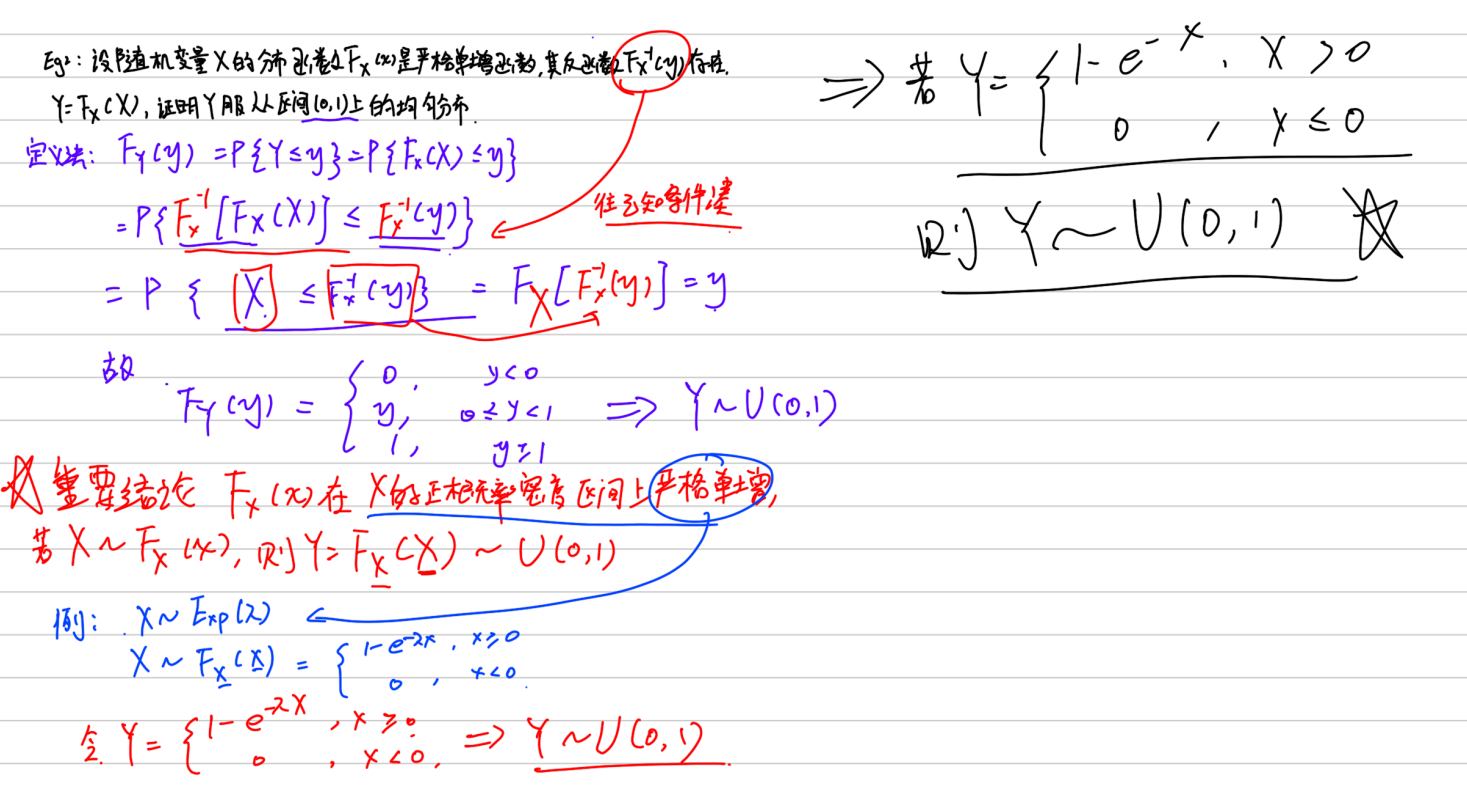 Eg2：设随机变量X的分布函数Fx(x)是严格单增函数,其反函数Fx⁻¹(y)存在.
Y=Fx(X),证明Y服从区间(0,1)上的均匀分布.
定义法: F_Y(y) = P{Y≤y} = P{Fx(X)≤y}
= P{Fx⁻¹[Fx(X)] ≤ Fx⁻¹(y)}
往已知条件凑
= P{X ≤ Fx⁻¹(y)} = F_X[Fx⁻¹(y)] = y
故
F_Y(y) = { 0, y<0
y, 0≤y<1 ⇒ Y~U(0,1)
1, y≥1
☆重要结论 F_X(x)在X的正概率密度区间上严格单增,
若X~F_X(x),则Y=F_X(X)~U(0,1)
例: X~Exp(λ)
X~F_X(x) = { 1-e^-λx, x≥0
0, x<0.
令Y= { 1-e^-λX, x≥0 ⇒ Y~U(0,1)
0, x<0.
⇒ 若Y= { 1-e^-x, x>0
0, x≤0
则Y~U(0,1) ☆